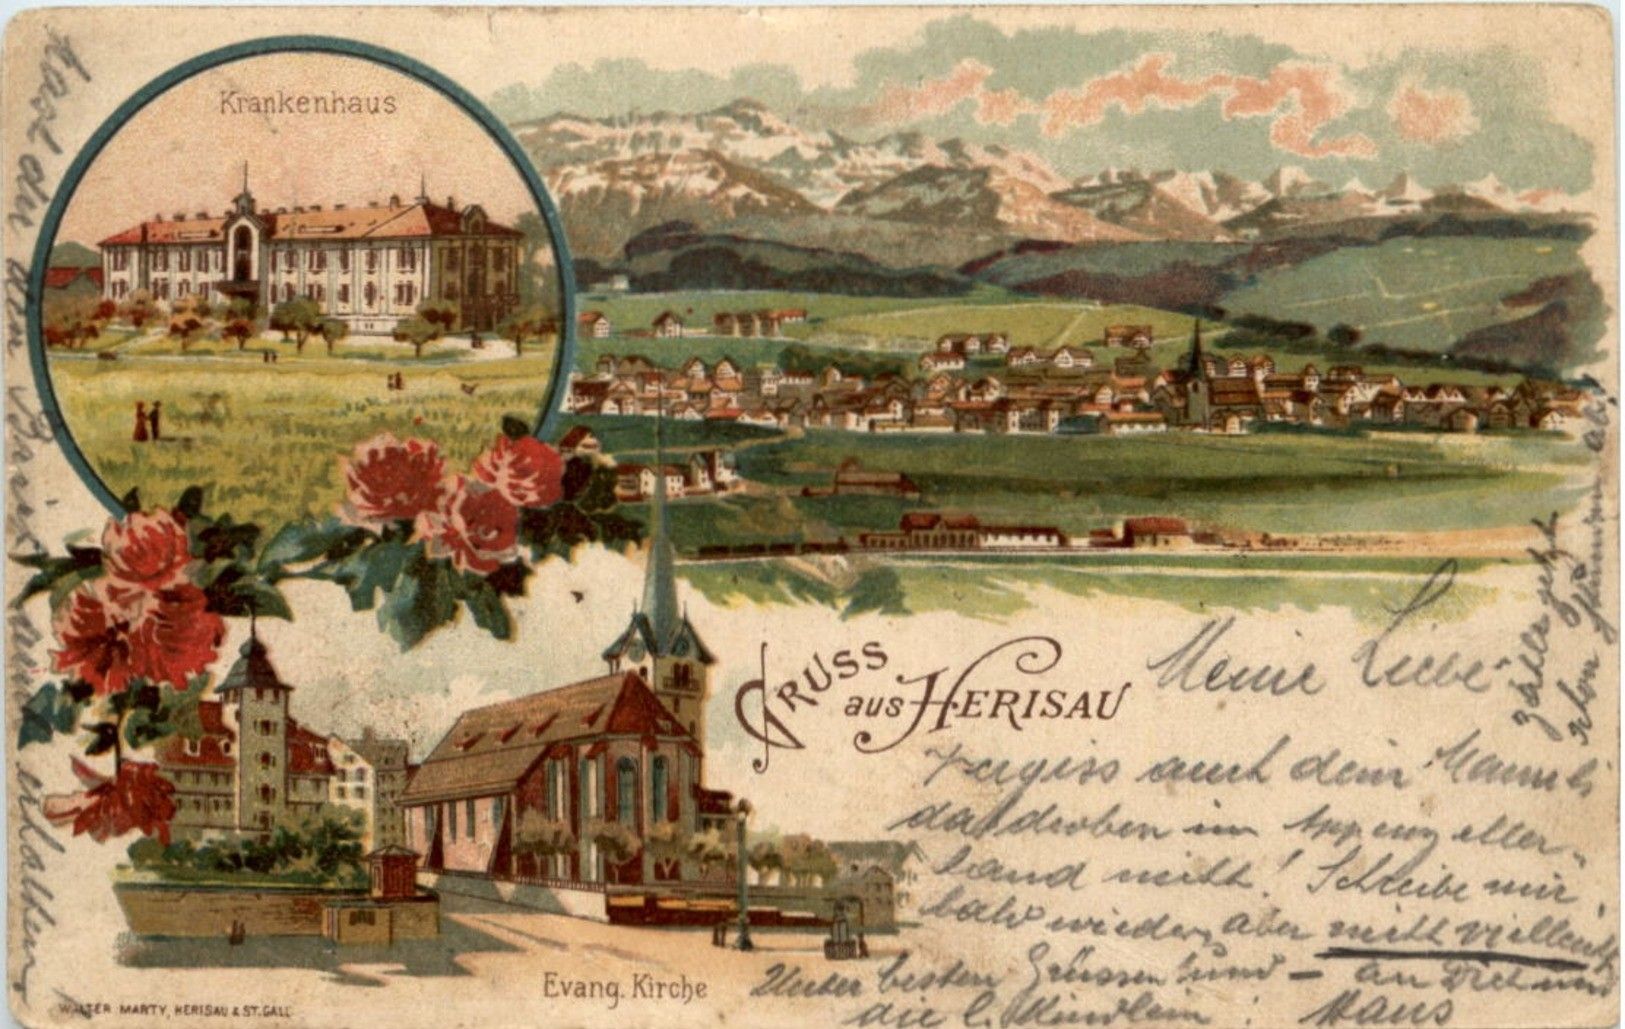 Krankenhaus
GRUSS
aus HERISAU
Meine Liebe
Vergiss auch dein Mannli
da droben im Appenzeller-
land nicht! Schreibe mir
bald wieder, aber nicht vielleicht
Unter besten Grüssen und – an Dich und
die l. Kindlein! Hans
hast du mein Brief auch erhalten
Evang. Kirche
WALTER MARTY, HERISAU & ST. GALL